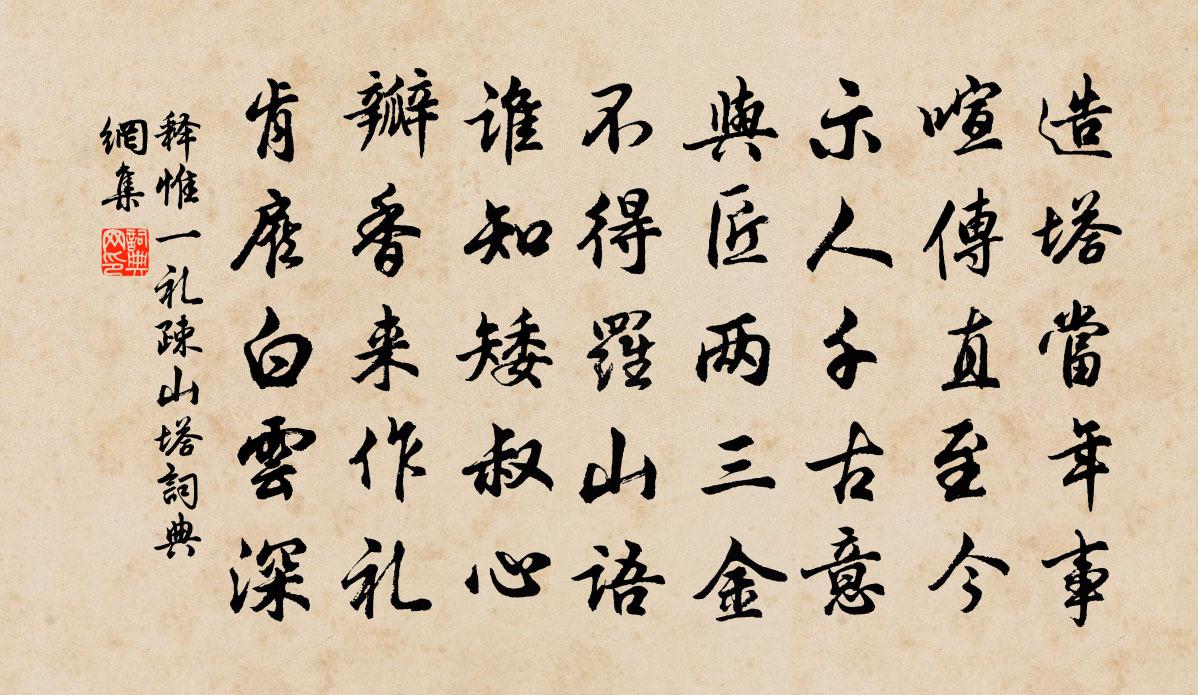 造塔當年事
喧傳直至今
示人千古意
與匠两三金
不得羅山語
誰知矮叔心
瓣香来作礼
肯白雲深
释惟一礼疎山塔詞典
網集
詞典
网印